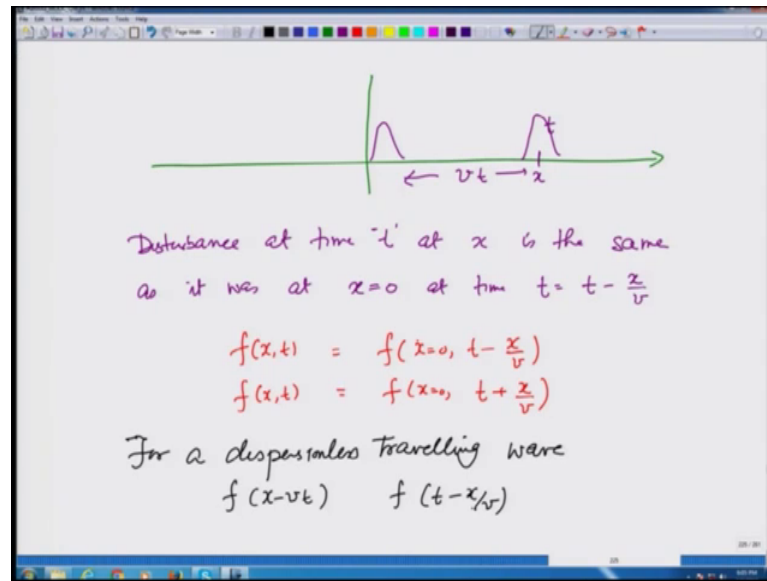 File Edit View Insert Actions Tools Help
Page Width
t
← vt → x
Disturbance at time 't' at x is the same
as it was at x=0 at time t = t - x/v
f(x,t) = f(x=0, t - x/v)
f(x,t) = f(x=0, t + x/v)
For a dispersionless travelling wave
f(x-vt) f(t-x/v)